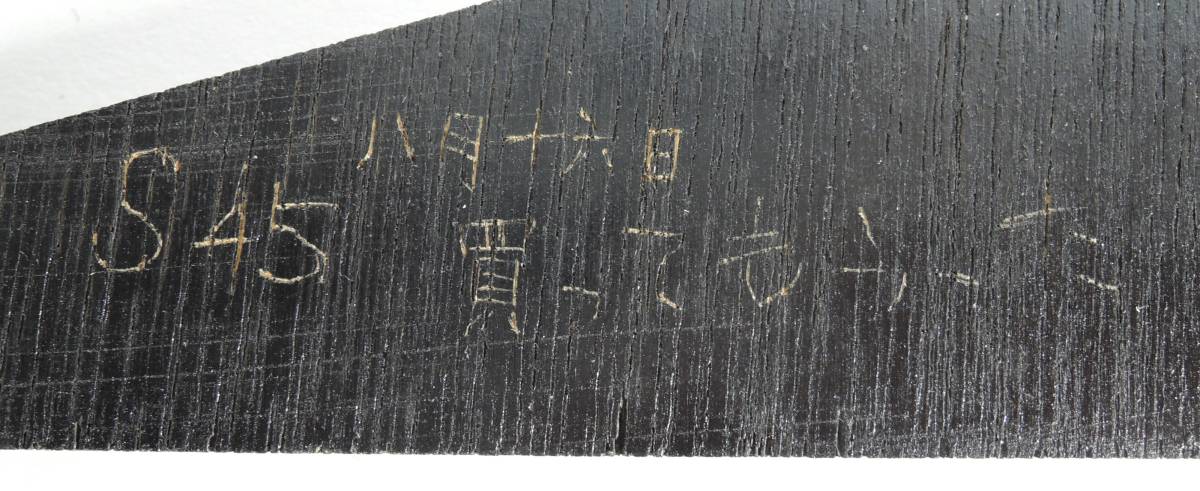 S45 八月十六日
買ってもらった